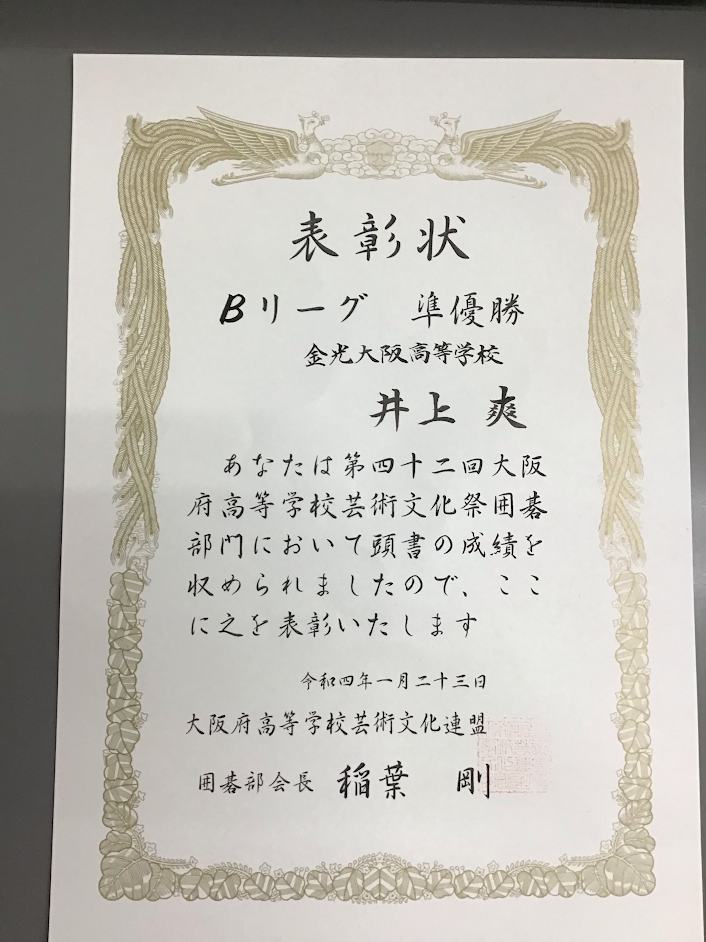 表彰状
Bリーグ 準優勝
金光大阪高等学校
井上 爽
あなたは第四十二回大阪
府高等学校芸術文化祭囲碁
部門において頭書の成績を
収められましたので、ここ
に之を表彰いたします
令和四年一月二十三日
大阪府高等学校芸術文化連盟
囲碁部会長 稲葉 剛